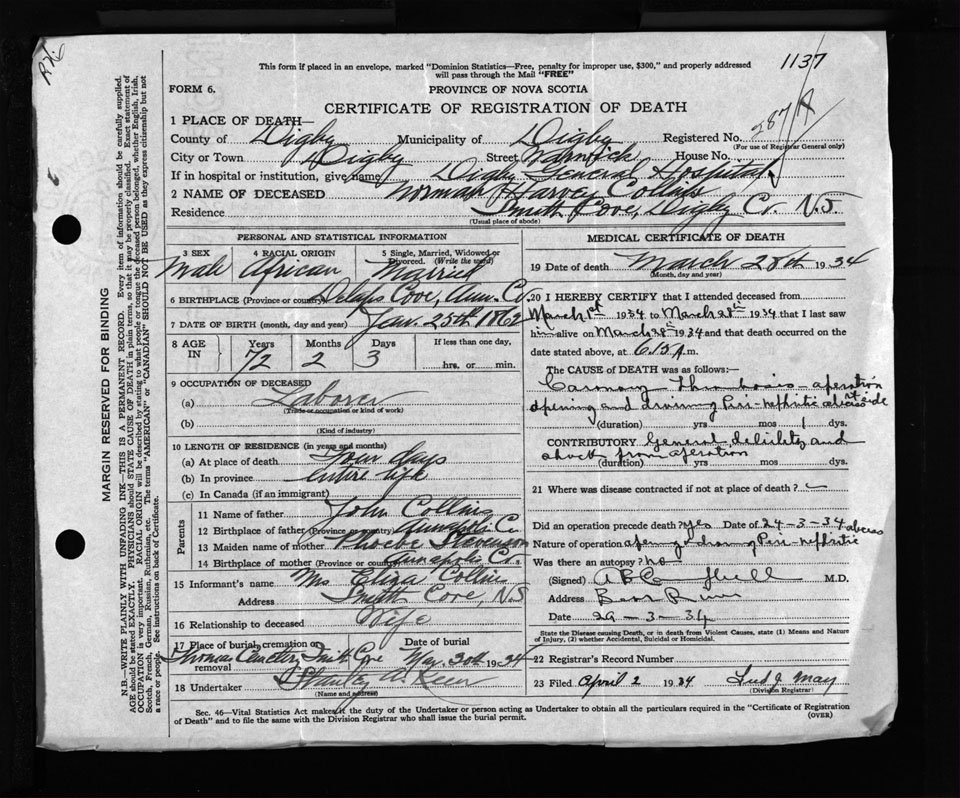 1137
This form if placed in an envelope, marked "Dominion Statistics—Free, penalty for improper use, $300," and properly addressed
will pass through the Mail "FREE"
FORM 6.
PROVINCE OF NOVA SCOTIA
CERTIFICATE OF REGISTRATION OF DEATH
287 A
1 PLACE OF DEATH—
County of Digby Municipality of Digby Registered No.
(For use of Registrar General only)
City or Town Digby Street Warwick House No.
If in hospital or institution, give name Digby General Hospital
2 NAME OF DECEASED Norman Harvey Collins
Residence Smith Cove, Digby Co. N.S.
(Usual place of abode)
PERSONAL AND STATISTICAL INFORMATION
3 SEX
Male
4 RACIAL ORIGIN
African
5 Single, Married, Widowed or Divorced. (Write the word)
Married
6 BIRTHPLACE (Province or country) Delaps Cove, Ann. Co.
7 DATE OF BIRTH (month, day and year) Jan. 25th 1862
8 AGE IN Years Months Days If less than one day,
72 2 3 hrs. or min.
9 OCCUPATION OF DECEASED
(a) Laborer
(Trade or occupation or kind of work)
(b)
(Kind of industry)
10 LENGTH OF RESIDENCE (in years and months)
(a) At place of death Four days
(b) In province entire life
(c) In Canada (if an immigrant)
Parents
11 Name of father John Collins
12 Birthplace of father (Province or country) Annapolis Co.
13 Maiden name of mother Phoebe Stevenson
14 Birthplace of mother (Province or country) Annapolis Co.
15 Informant's name Mrs Eliza Collins
Address Smith Cove, N.S
16 Relationship to deceased Wife
17 Place of burial, cremation or removal Date of burial
Cemetery Smith Cove Mar. 30th 1934
18 Undertaker Stanley
(Name and address)
MEDICAL CERTIFICATE OF DEATH
19 Date of death March 28th 1934
(Month, day and year)
20 I HEREBY CERTIFY that I attended deceased from
March 1st 1934 to March 28th 1934 that I last saw
him alive on March 28th 1934 and that death occurred on
date stated above, at 6.15 A. m.
The CAUSE of DEATH was as follows:—
Coronary Thrombosis - operation
opening and draining Peri-nephritic abscess
(duration) yrs mos 1 dys.
CONTRIBUTORY General debility and
shock from operation
(duration) yrs mos dys.
21 Where was disease contracted if not at place of death?
Did an operation precede death? yes Date of 24-3-34
Nature of operation opening & draining Peri-nephritic abscess
Was there an autopsy? no
(Signed) M.D.
Address Bear River
Date 29-3-34
State the Disease causing Death, or in death from Violent Causes, state (1) Means and Nature
of Injury, (2) whether Accidental, Suicidal or Homicidal.
22 Registrar's Record Number
23 Filed April 2 1934 Fred J. May
(Division Registrar)
Sec. 46—Vital Statistics Act makes it the duty of the Undertaker or person acting as Undertaker to obtain all the particulars required in the "Certificate of Registration
of Death" and to file the same with the Division Registrar who shall issue the burial permit.
(OVER)
MARGIN RESERVED FOR BINDING
N.B.—WRITE PLAINLY WITH UNFADING INK—THIS IS A PERMANENT RECORD. Every item of information should be carefully supplied.
AGE should be stated EXACTLY. PHYSICIANS should STATE CAUSE OF DEATH in plain terms, so that it may be properly classified. Exact statement of
OCCUPATION is very important. RACIAL ORIGIN will be described by stating to what people or tongue the deceased person belonged, whether English, Irish,
Scotch, French, German, Russian, Ruthenian, etc. The terms "AMERICAN" or "CANADIAN" SHOULD NOT BE USED as they express citizenship but not
a race or people. See instructions on back of Certificate.